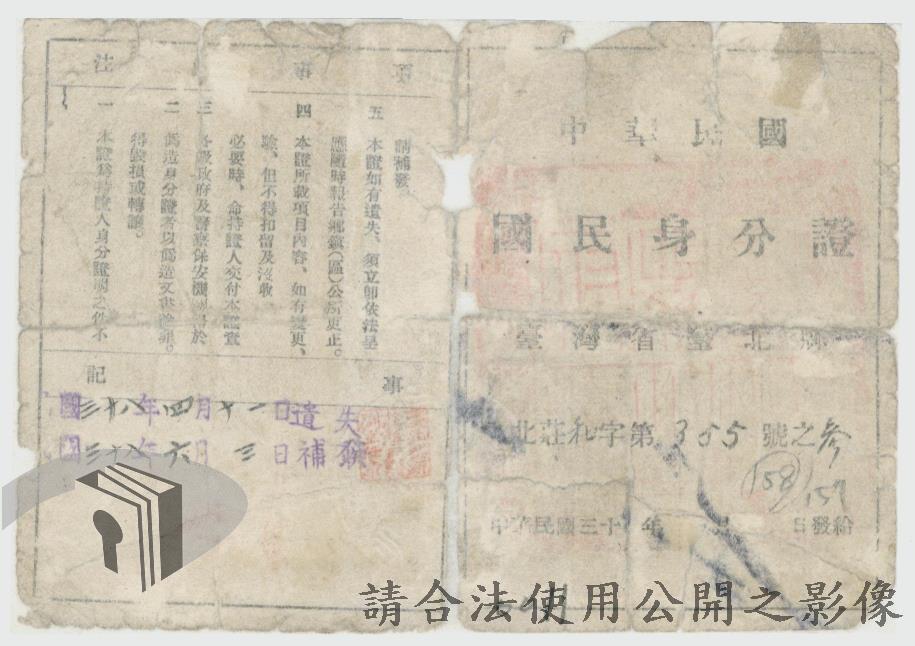 中華民國
國民身分證
臺灣省臺北縣
北莊和字第355號之參
158
157
中華民國三十 年 日發給
注 事 項
一 本證為持證人身分證明之件不
得毀損或轉讓。
二 偽造身分證者以偽造文書論罪。
三 各級政府及警察保安機關於
必要時、命持證人交付本證查
驗、但不得扣留及沒收
四 本證所載項目內容、如有變更、
應隨時報告鄉鎮(區)公所更正。
五 本證如有遺失、須立即依法呈
請補發。
記 事
國三十八年四月十一日遺失
國三十八年六月三日補發
請合法使用公開之影像